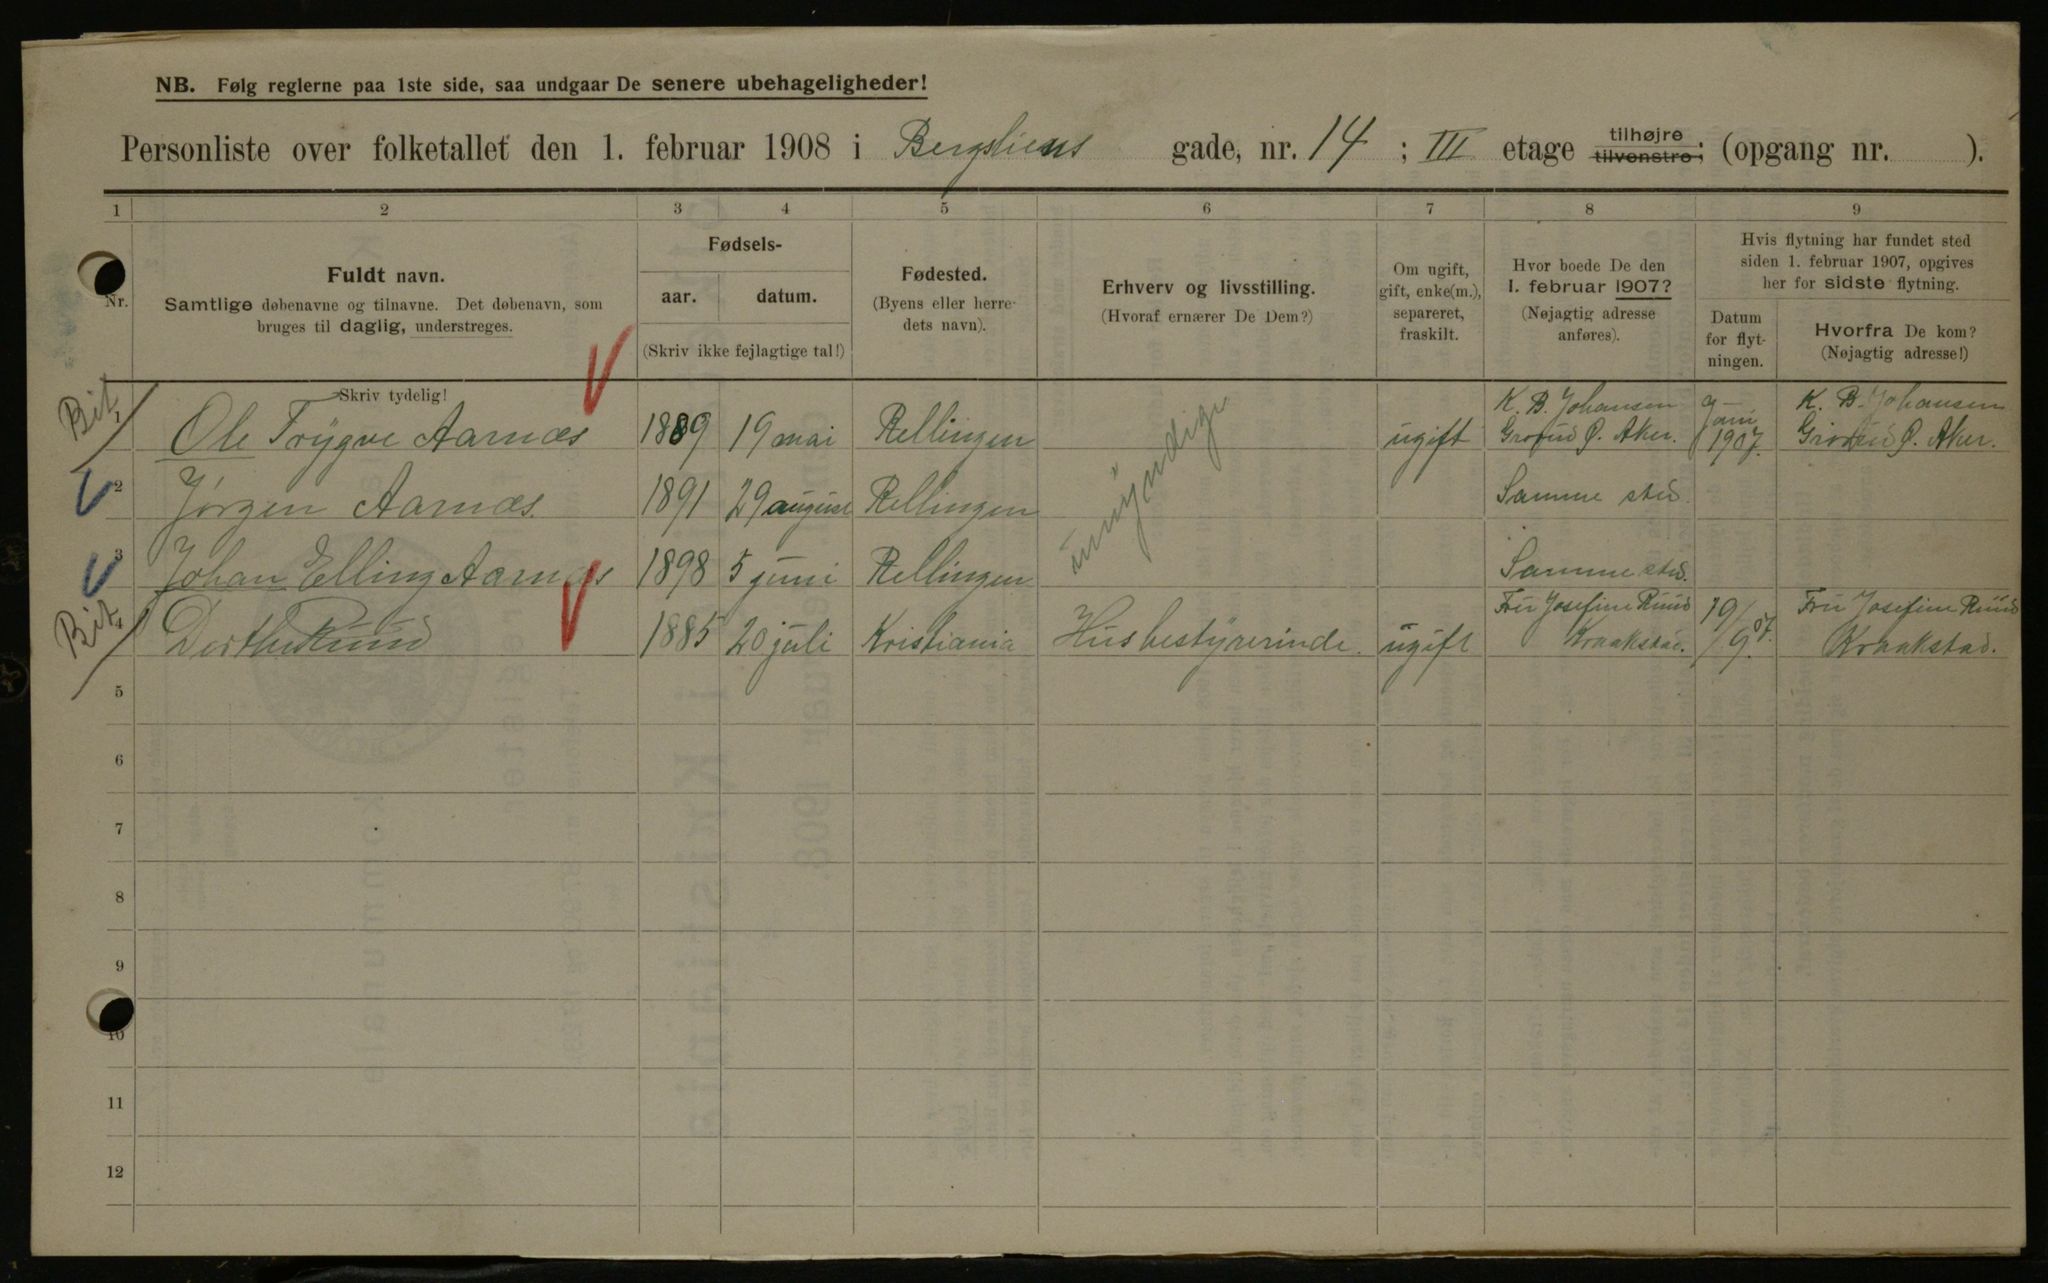 NB. Følg reglerne paa 1ste side, saa undgaar De senere ubehageligheder!
Personliste over folketallet den 1. februar 1908 i Bergsliens gade, nr. 14 ; III etage tilhøjre tilvenstre; (opgang nr. ).
1 2 3 4 5 6 7 8 9
Nr.
Fuldt navn.
Samtlige døbenavne og tilnavne. Det døbenavn, som
bruges til daglig, understreges.
Fødsels-
aar. datum.
(Skriv ikke fejlagtige tal!)
Fødested.
(Byens eller herre-
dets navn).
Erhverv og livsstilling.
(Hvoraf ernærer De Dem?)
Om ugift,
gift, enke(m.),
separeret,
fraskilt.
Hvor boede De den
1. februar 1907?
(Nøjagtig adresse
anføres).
Hvis flytning har fundet sted
siden 1. februar 1907, opgives
her for sidste flytning.
Datum
for flyt-
ningen.
Hvorfra De kom?
(Nøjagtig adresse!)
Skriv tydelig!
Bit.
1 Ole Trygve Aarnæs 1889 19 mai Rellingen umyndige ugift K. B. Johansen Grorud Ø. Aker. 9 1907. K. B. Johansen Grorud Ø. Aker.
2 Jørgen Aarnæs. 1891 29 august Rellingen Samme sted.
3 Johan Elling Aarnæs 1898 5 juni Rellingen Samme sted.
Bit.
4 Dorthe Ruud 1885 20 juli Kristiania Husbestyrerinde. ugift Fru Josefine Ruud Kraakstad. 19/9 07. Fru Josefine Ruud Kraakstad.
5
6
7
8
9
10
11
12